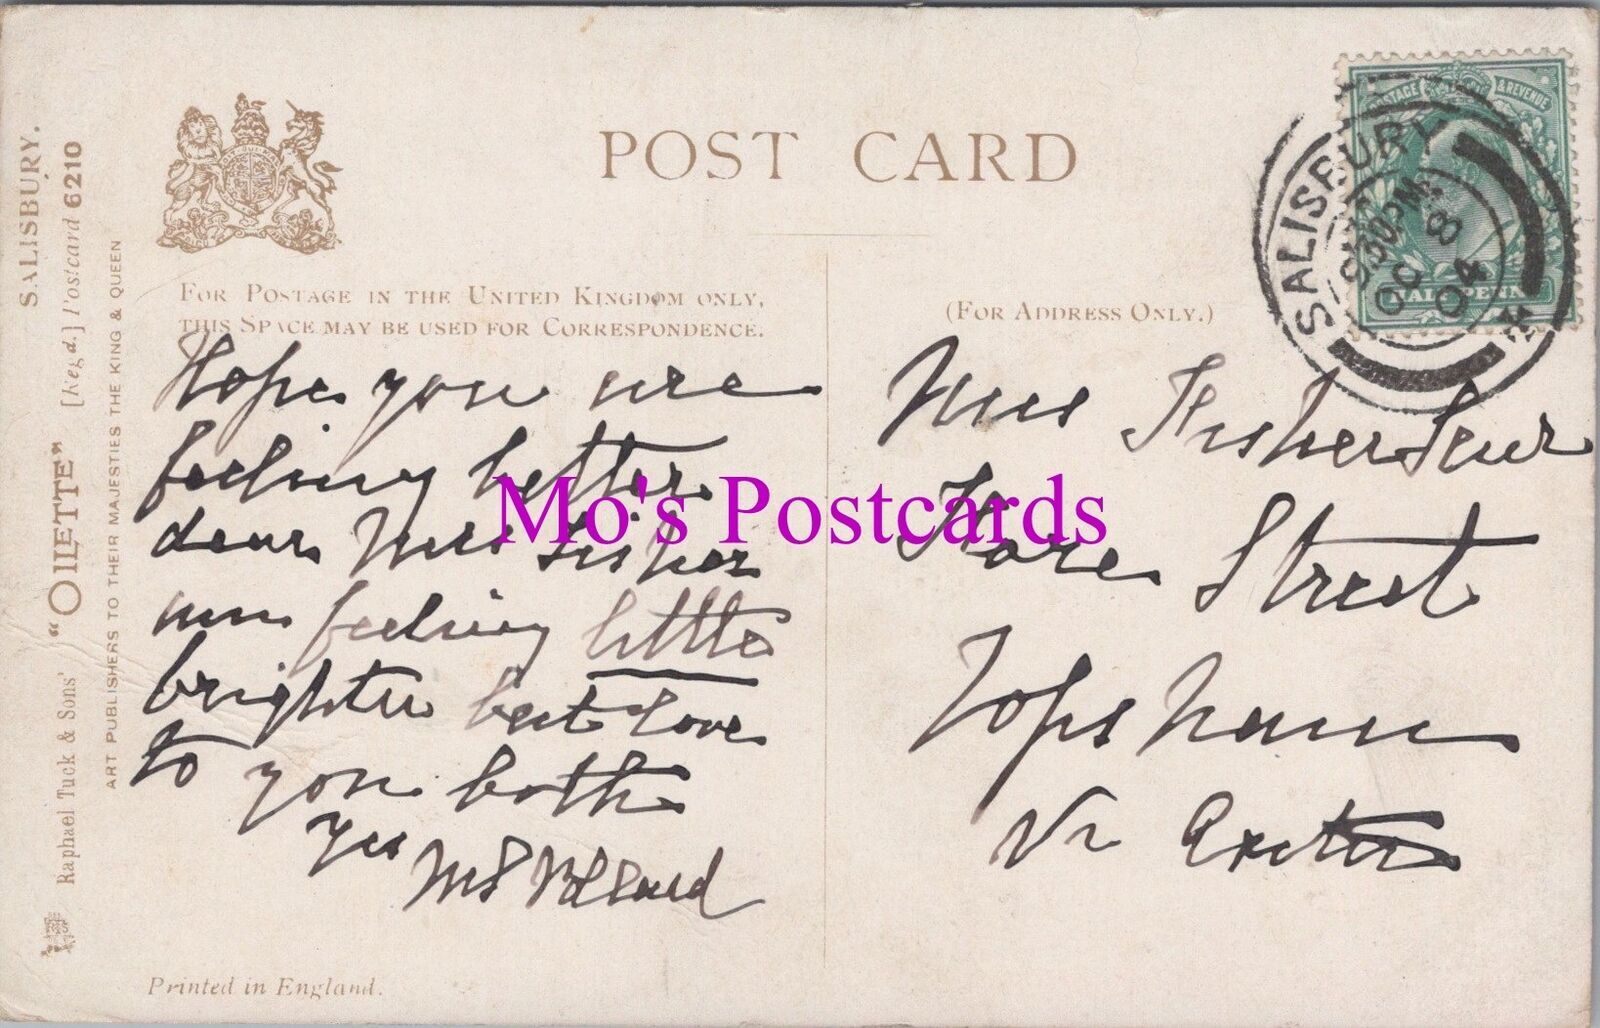 POST CARD
FOR POSTAGE IN THE UNITED KINGDOM ONLY,
THIS SPACE MAY BE USED FOR CORRESPONDENCE.
Hope you are
feeling better
dear Mrs Fisher
am feeling little
brighter best love
to you both
Yrs
Printed in England.
(FOR ADDRESS ONLY.)
Mrs Fisher Senr
Fore Street
Topsham
Nr Exeter
POSTAGE & REVENUE
HALF PENNY
SALISBURY
930PM
OC 8
04
SALISBURY.
"OILETTE" [Regd.] Postcard 6210
Raphael Tuck & Sons'
ART PUBLISHERS TO THEIR MAJESTIES THE KING & QUEEN
Mo's Postcards